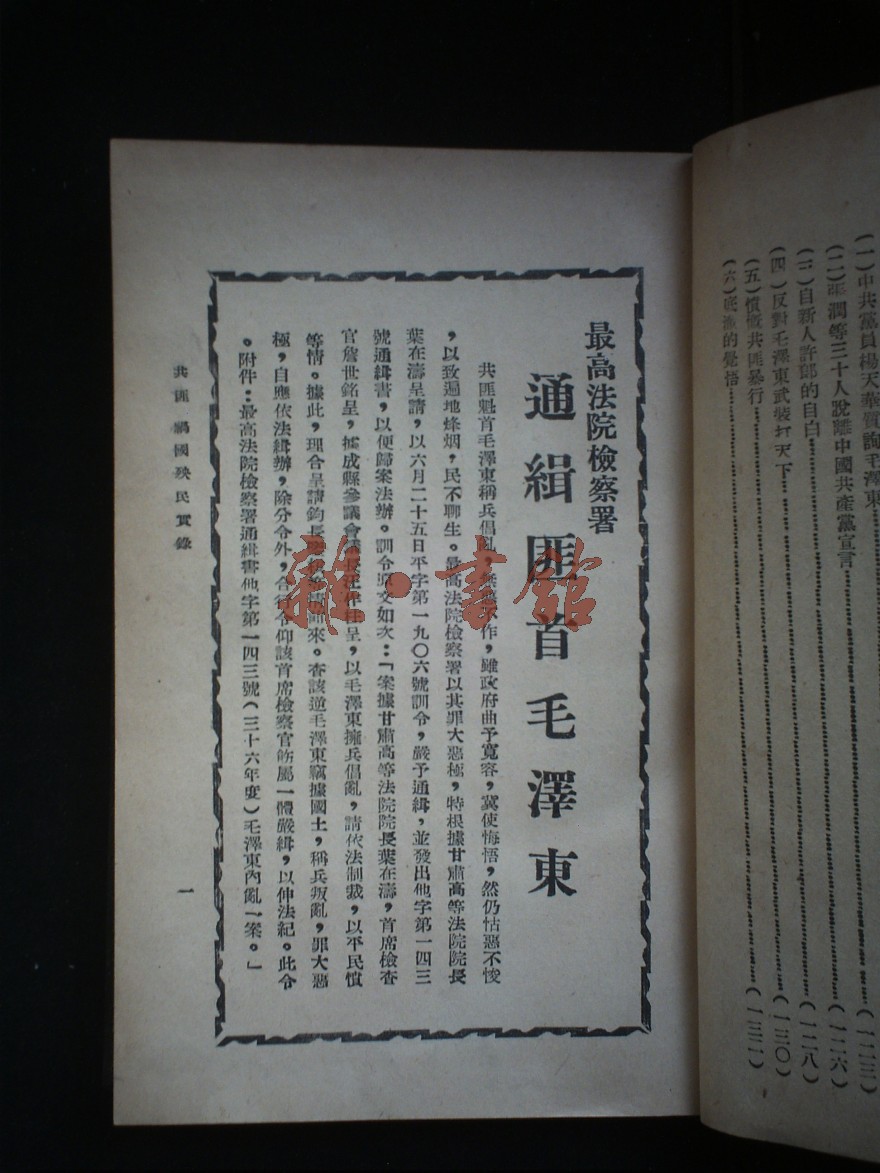 (一)中共黨員楊天華質詢毛澤東……(一二三)
(二)張潤等三十人脫離中國共產黨宣言……(一二六)
(三)自新人許郁的自白……(一二八)
(四)反對毛澤東武裝打天下……(一三〇)
(五)憤慨共匪暴行……(一三二)
(六)底漁的覺悟
最高法院檢察署
通緝匪首毛澤東
共匪魁首毛澤東稱兵倡亂,無惡不作,雖政府曲予寬容,冀使悔悟,然仍怙惡不悛
,以致遍地烽烟,民不聊生。最高法院檢察署以其罪大惡極,特根據甘肅高等法院院長
葉在濤呈請,以六月二十五日平字第一九〇六號訓令,嚴予通緝,並發出他字第一四三
號通緝書,以便歸案法辦。訓令原文如次:「案據甘肅高等法院院長葉在濤,首席檢查
官詹世銘呈,據成縣參議會議長汪 呈,以毛澤東擁兵倡亂,請依法制裁,以平民憤
等情。據此,理合呈請鈞長 核 情前來。查該逆毛澤東竊據國土,稱兵叛亂,罪大惡
極,自應依法緝辦,除分令外,合行令仰該首席檢察官飭屬一體嚴緝,以伸法紀。此令
。附件:最高法院檢察署通緝書他字第一四三號(三十六年度)毛澤東內亂一案。」
共匪禍國殃民實錄
一
雜·書館